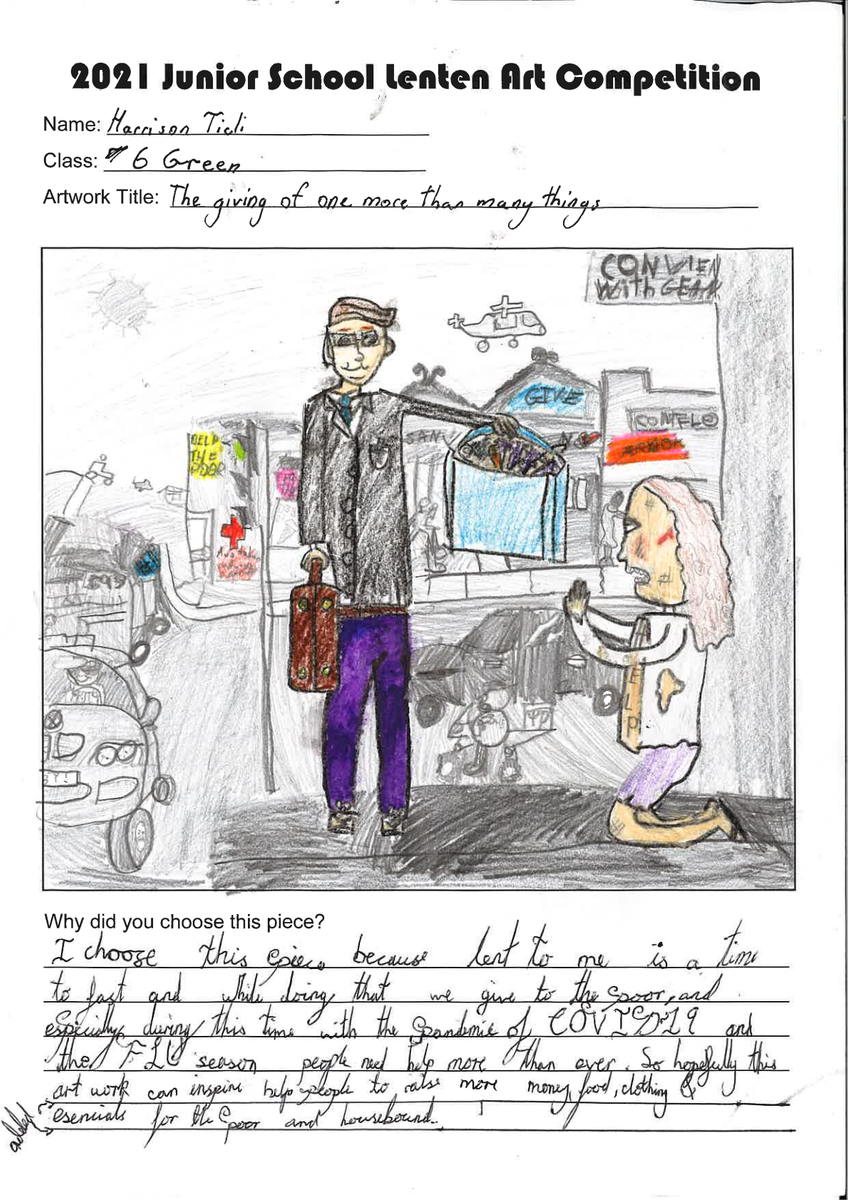 2021 Junior School Lenten Art Competition
Name: Harrison Tidi
Class: 6 Green
Artwork Title: The giving of one more than many things
CONVIEN
With GEAM
GIVE
HELP
THE
POOR
SAN
COMFLO
HELP
Why did you choose this piece?
I choose this piece because lent to me is a time
to fast and while doing that we give to the poor, and
especially during this time with the pandemic of COVID19 and
the FLU season people need help more than ever. So hopefully this
art work can inspire help people to raise more money, food, clothing &
esencials for the poor and housebound.
added